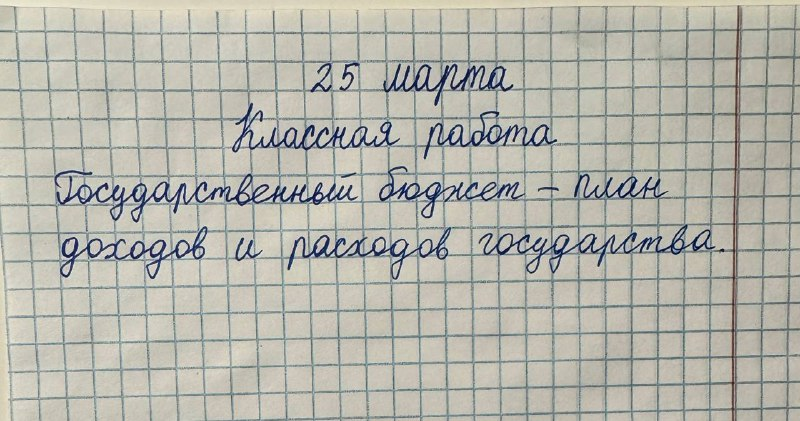 25 марта
Классная работа
Государственный бюджет – план
доходов и расходов государства.